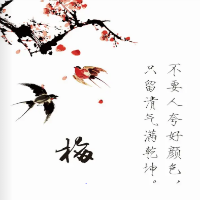 不要人夸好颜色，
只留清气满乾坤。
梅